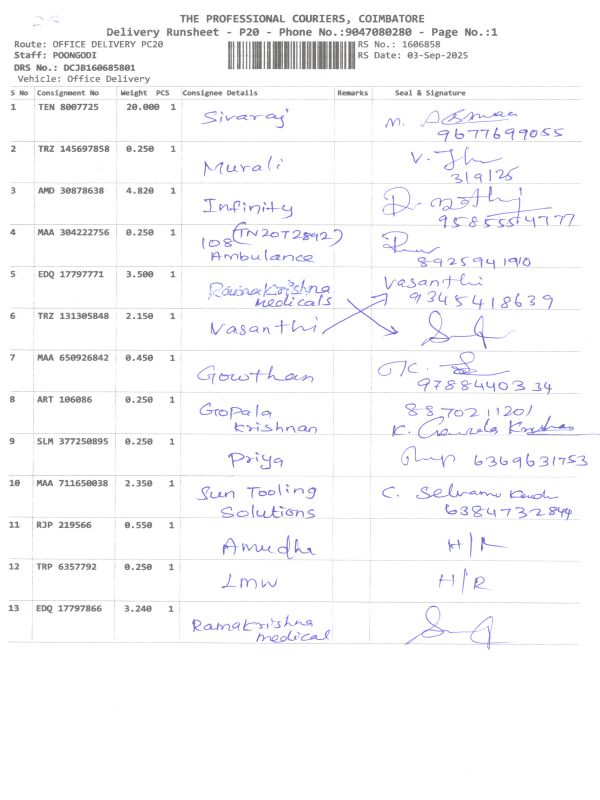 THE PROFESSIONAL COURIERS, COIMBATORE
Delivery Runsheet - P20 - Phone No.:9047080280 - Page No.:1
Route: OFFICE DELIVERY PC20 RS No.: 1606858
Staff: POONGODI RS Date: 03-Sep-2025
DRS No.: DCJB160685801
Vehicle: Office Delivery
S No Consignment No Weight PCS Consignee Details Remarks Seal & Signature
1 TEN 8007725 20.000 1 Sivaraj M.
9677699055
2 TRZ 145697858 0.250 1 Murali V.
3/9/25
3 AMD 30878638 4.820 1 Infinity
9585554777
4 MAA 304222756 0.250 1 108 (TN20T2892)
Ambulance 8925941910
5 EDQ 17797771 3.500 1 Ramakrishna Vasanthi
medicals 9345418639
6 TRZ 131305848 2.150 1 Vasanthi
7 MAA 650926842 0.450 1 Gowthan
9788440334
8 ART 106086 0.250 1 Gopala 8870211201
Krishnan K.
9 SLM 377250895 0.250 1 Priya 6369631753
10 MAA 711650038 2.350 1 Sun Tooling C.
Solutions 6384732844
11 RJP 219566 0.550 1 Amudha H/R
12 TRP 6357792 0.250 1 LMW H/R
13 EDQ 17797866 3.240 1 Ramakrishna
medical